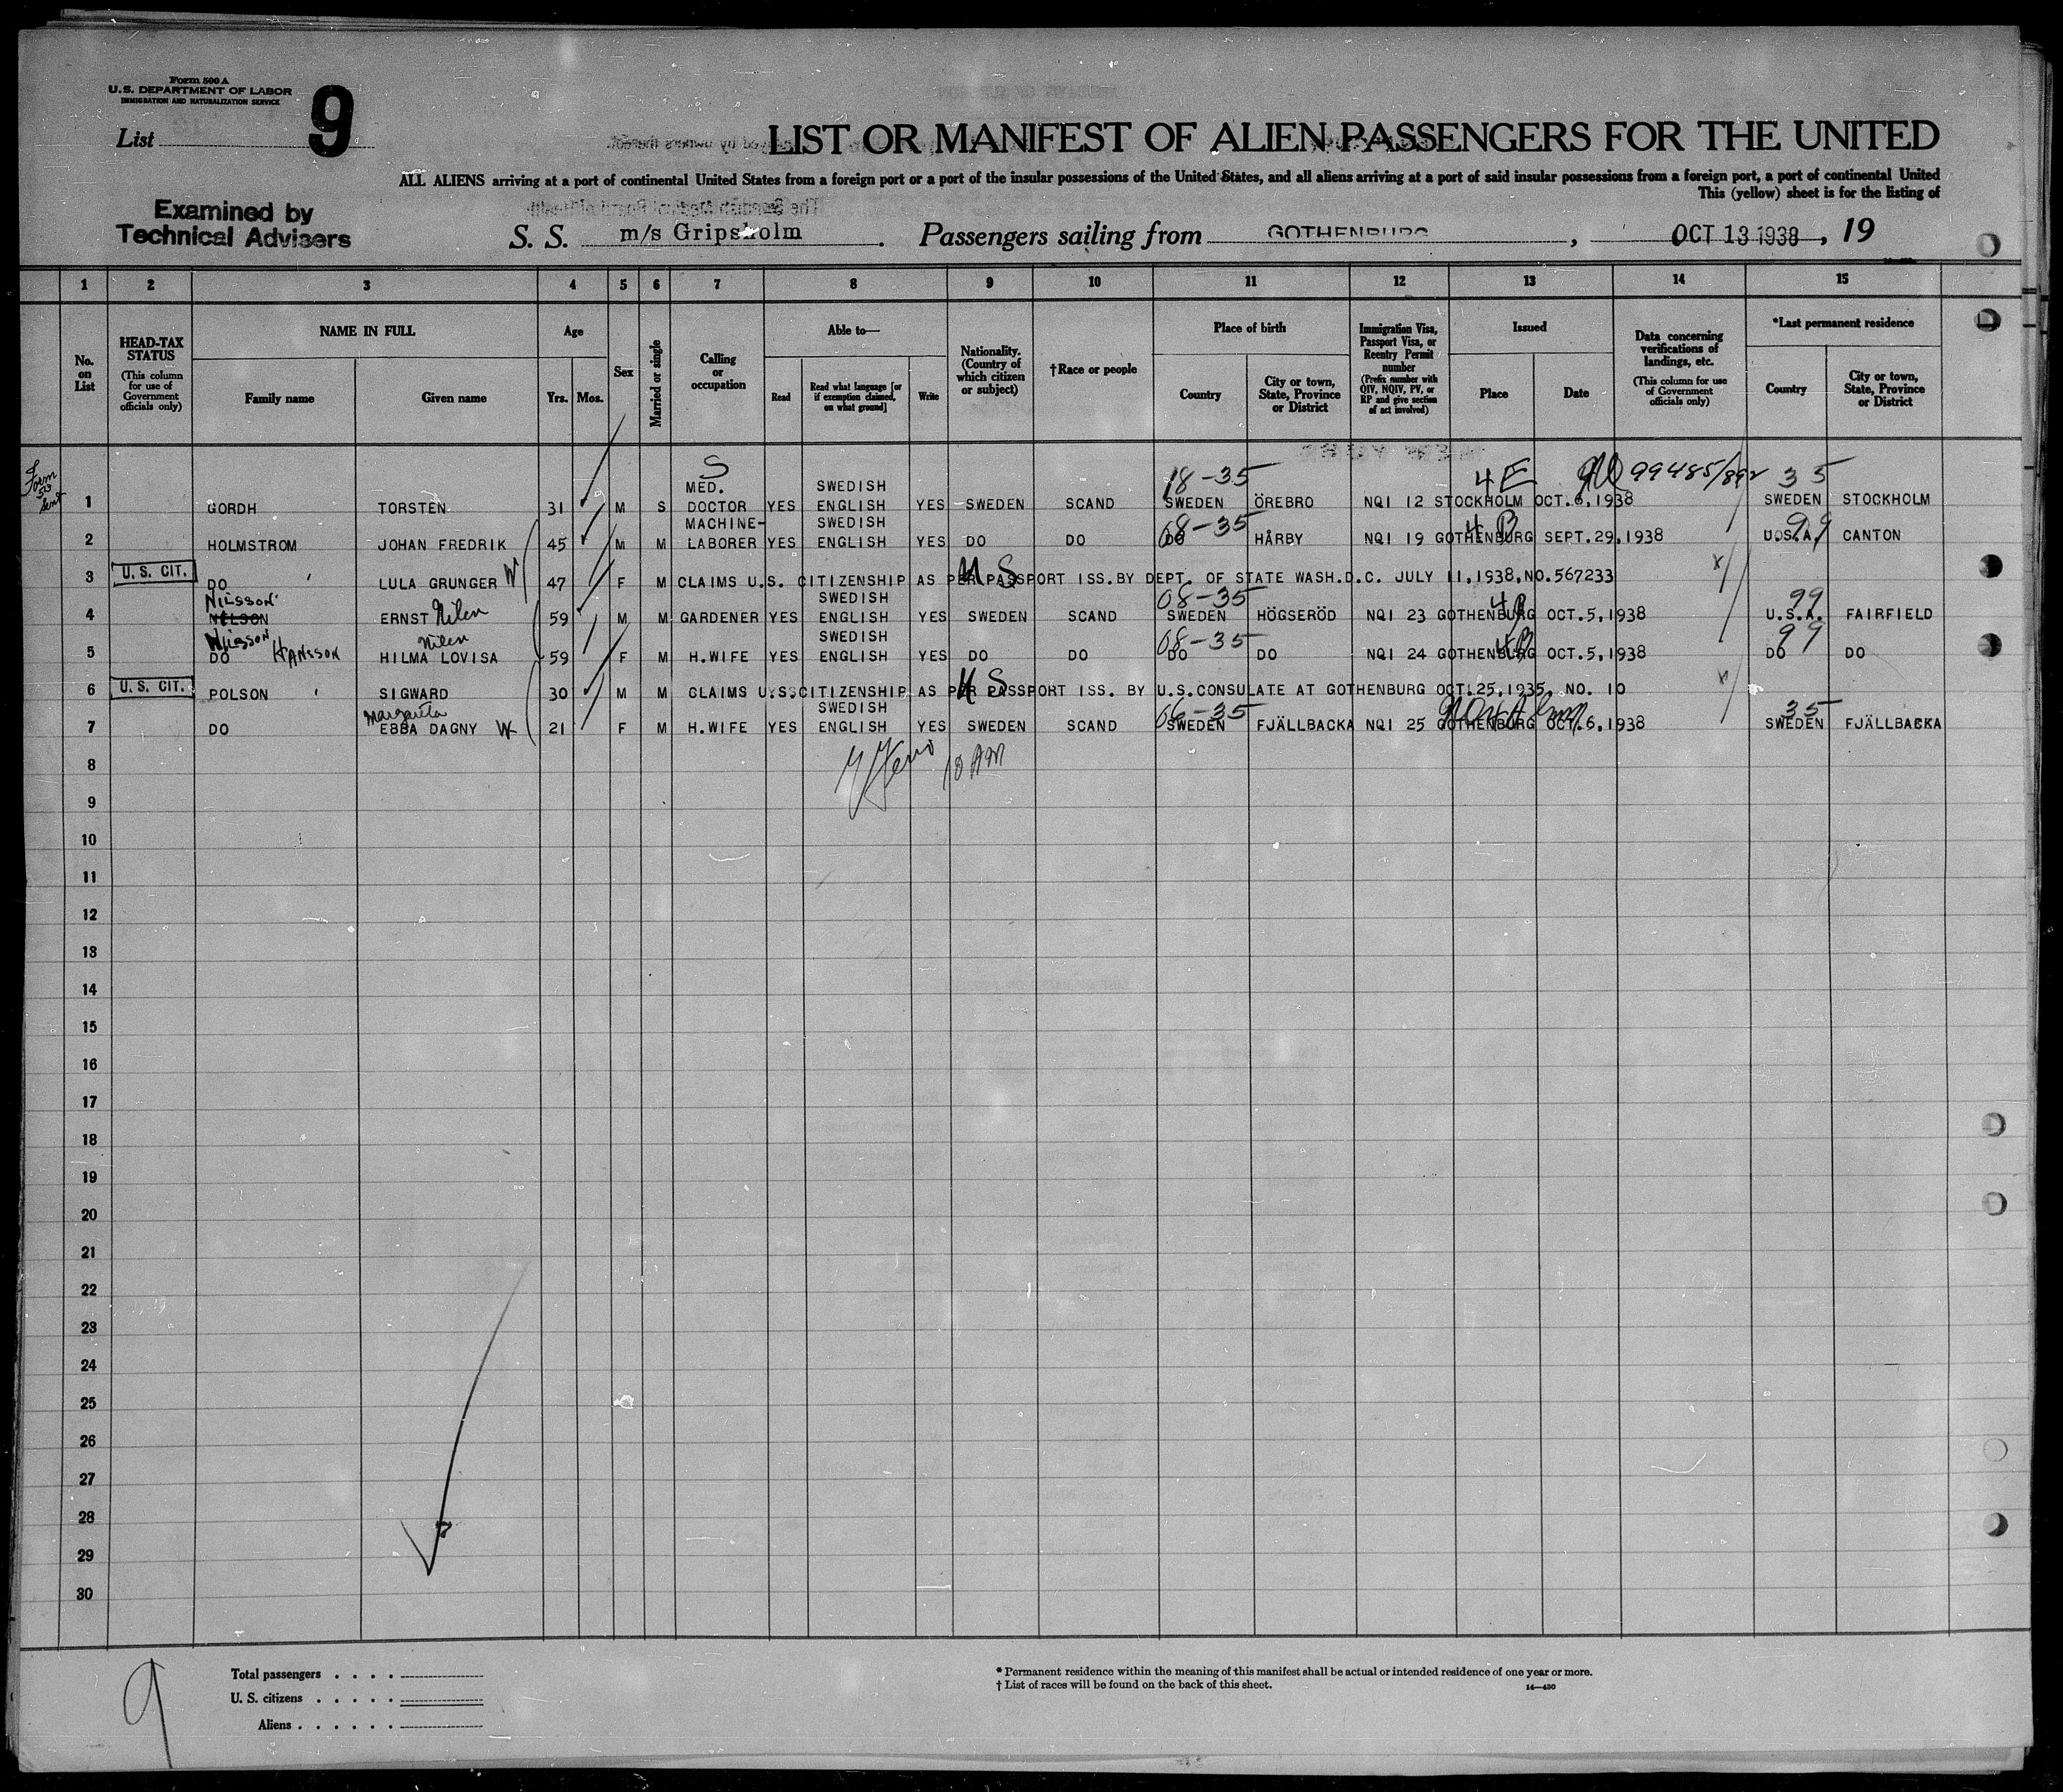 Form 500 A
U.S. DEPARTMENT OF LABOR
IMMIGRATION AND NATURALIZATION SERVICE
List 9
LIST OR MANIFEST OF ALIEN PASSENGERS FOR THE UNITED
ALL ALIENS arriving at a port of continental United States from a foreign port or a port of the insular possessions of the United States, and all aliens arriving at a port of said insular possessions from a foreign port, a port of continental United
This (yellow) sheet is for the listing of
Examined by
Technical Advisers
S. S. m/s Gripsholm. Passengers sailing from GOTHENBURG, OCT 13 1938, 19
1 2 3 4 5 6 7 8 9 10 11 12 13 14 15
No. on List
HEAD-TAX STATUS (This column for use of Government officials only)
NAME IN FULL
Family name Given name
Age
Yrs. Mos.
Sex
Married or single
Calling or occupation
Able to—
Read Read what language [or if exemption claimed, on what ground] Write
Nationality. (Country of which citizen or subject)
†Race or people
Place of birth
Country City or town, State, Province or District
Immigration Visa, Passport Visa, or Reentry Permit number (Prefix number with QIV, NQIV, PV, or RP and give section of act involved)
Issued
Place Date
Data concerning verifications of landings, etc. (This column for use of Government officials only)
*Last permanent residence
Country City or town, State, Province or District
Form 523 Sent
S 18-35 4E 99485/892 35
1 GORDH TORSTEN 31 M S MED. DOCTOR YES SWEDISH ENGLISH YES SWEDEN SCAND SWEDEN ÖREBRO NQI 12 STOCKHOLM OCT.6,1938 SWEDEN STOCKHOLM
08-35 4B 99
2 HOLMSTROM JOHAN FREDRIK 45 M M MACHINE-LABORER YES SWEDISH ENGLISH YES DO DO DO HÅRBY NQI 19 GOTHENBURG SEPT.29,1938 U.S.A. CANTON
3 U. S. CIT. DO LULA GRUNGER W 47 F M CLAIMS U.S. CITIZENSHIP AS PER PASSPORT ISS.BY DEPT. OF STATE WASH.D.C. JULY 11,1938,NO.567233
US
Nilsson 08-35 4B 99
4 NELSON ERNST Nilen 59 M M GARDENER YES SWEDISH ENGLISH YES SWEDEN SCAND SWEDEN HÖGSERÖD NQI 23 GOTHENBURG OCT.5,1938 U.S.A. FAIRFIELD
Nilsson Nilen 08-35 4B 99
5 DO HANSSON HILMA LOVISA 59 F M H.WIFE YES SWEDISH ENGLISH YES DO DO DO DO NQI 24 GOTHENBURG OCT.5,1938 DO DO
6 U. S. CIT. POLSON SIGWARD 30 M M CLAIMS U.S.CITIZENSHIP AS PER PASSPORT ISS. BY U.S.CONSULATE AT GOTHENBURG OCT.25,1935, NO. 10
US
Margareta 06-35 35
7 DO EBBA DAGNY W 21 F M H.WIFE YES SWEDISH ENGLISH YES SWEDEN SCAND SWEDEN FJÄLLBACKA NQI 25 GOTHENBURG OCT.6,1938 SWEDEN FJÄLLBACKA
8
10 AM
9
10
11
12
13
14
15
16
17
18
19
20
21
22
23
24
25
26
27
28
29
30
9
Total passengers . . . .
U. S. citizens . . . . .
Aliens . . . . . .
* Permanent residence within the meaning of this manifest shall be actual or intended residence of one year or more.
† List of races will be found on the back of this sheet.
14—430